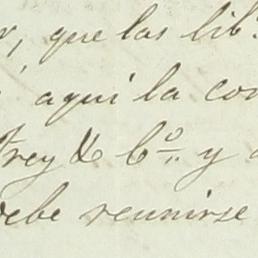 r, que las lib.
aqui la con
Frey & b.º y
debe reunirse